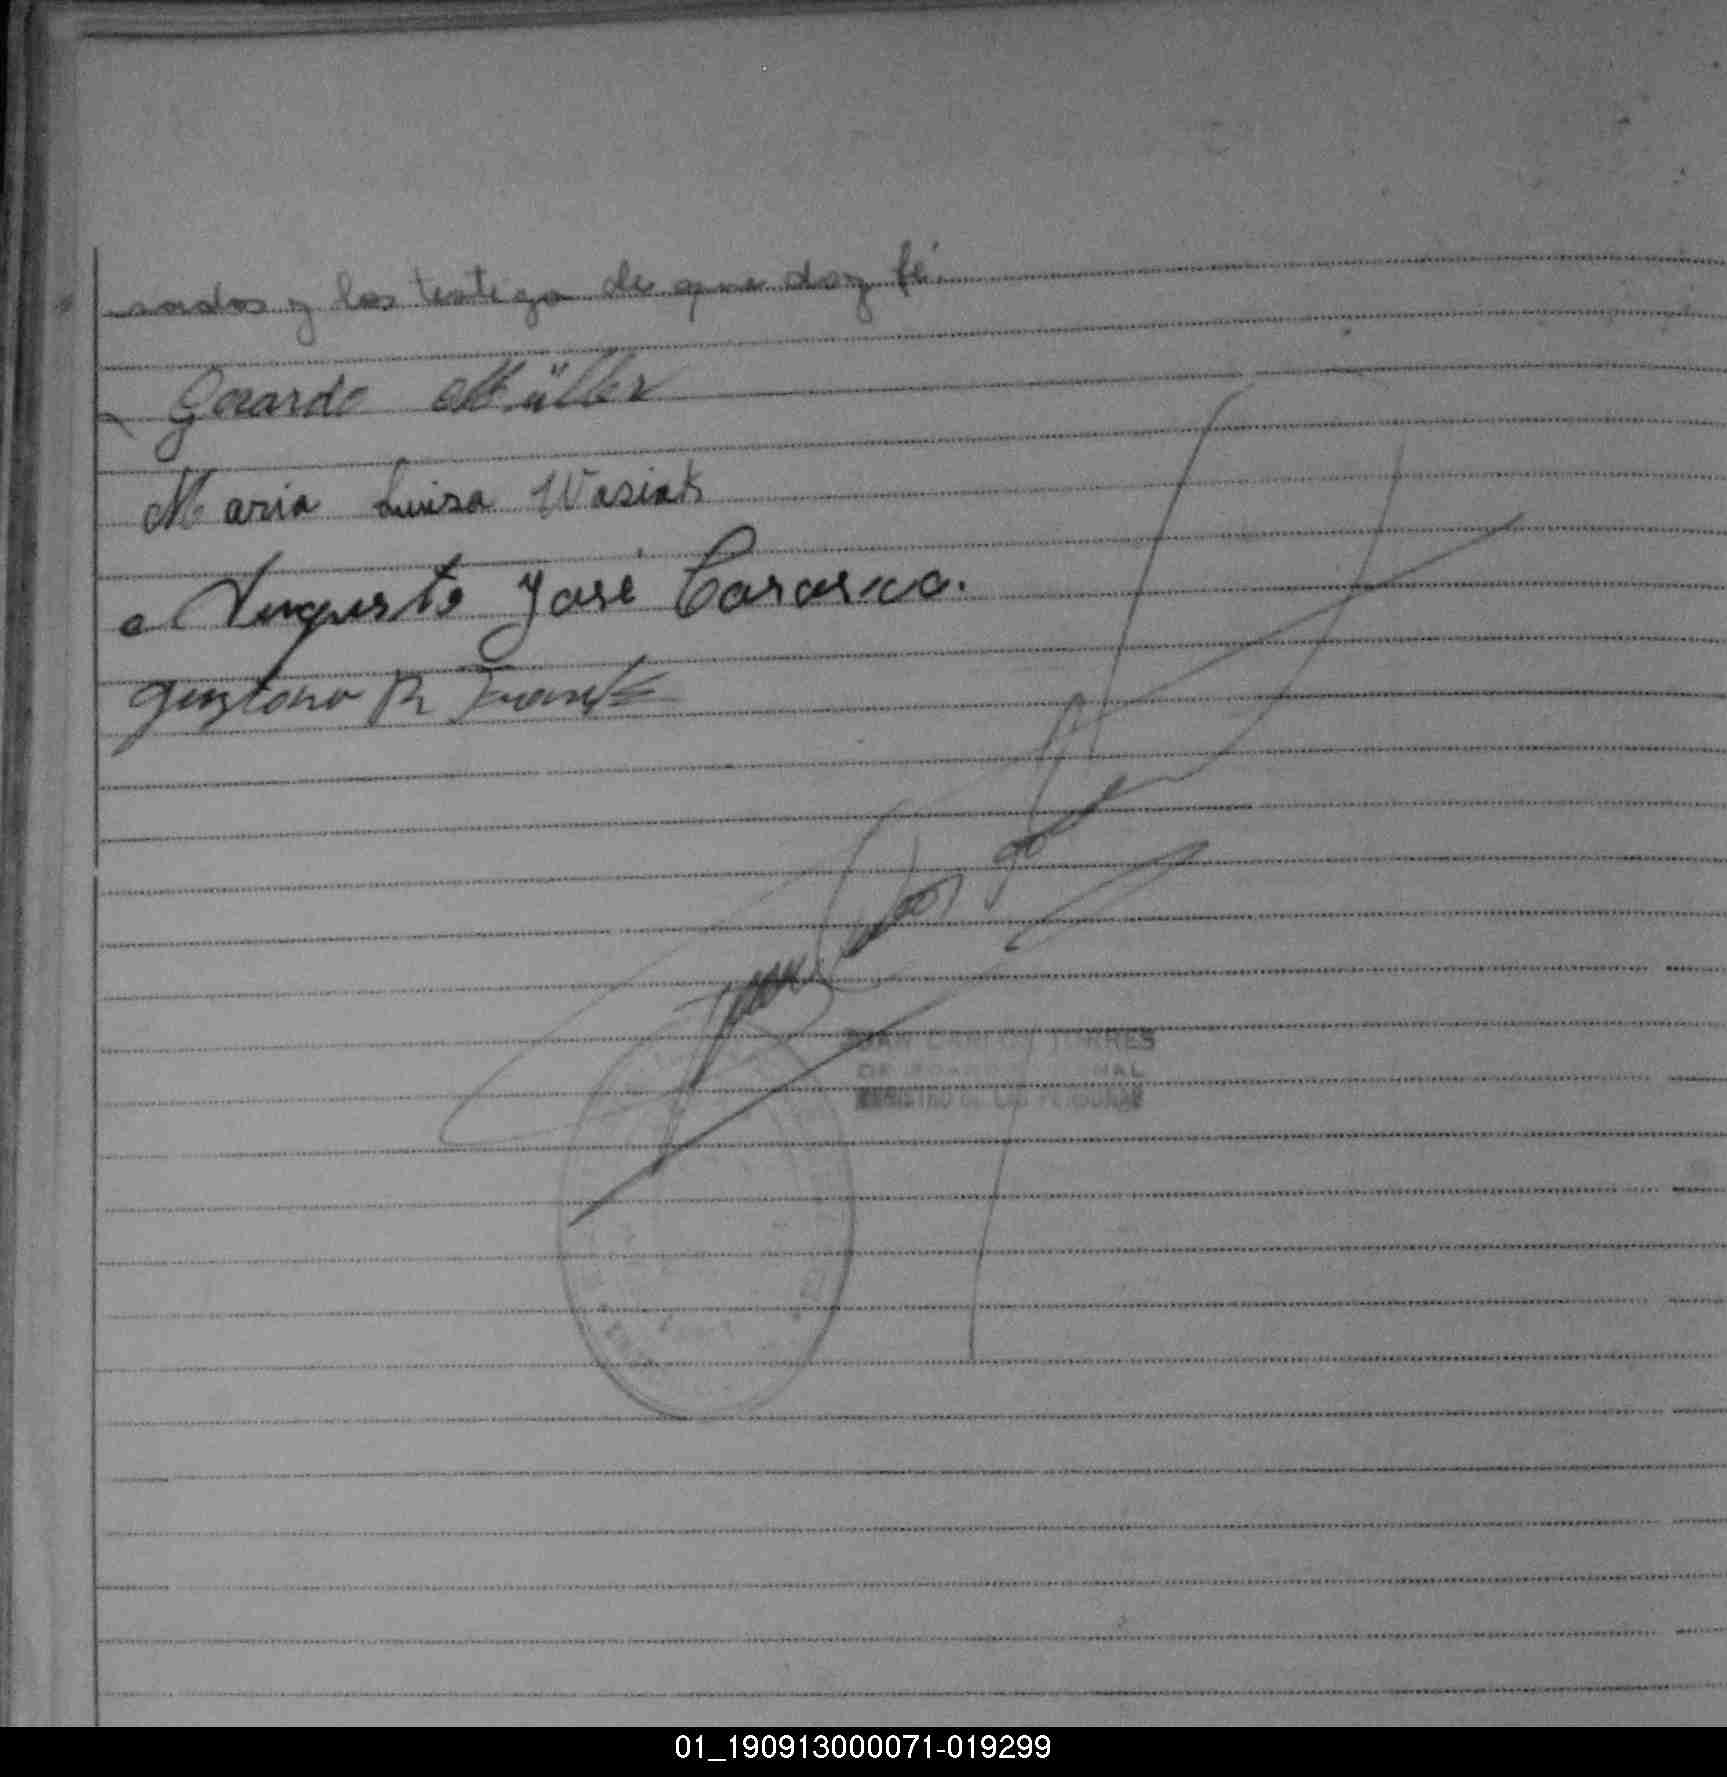 sados y los testigo de que doy fé.
Gerardo Müller
Maria Luisa Wasiak
Augusto José Carasco.
Gustavo R Frank
JUAN CARLOS TORRES
REGISTRO DE LAS PERSONAS
01_190913000071-019299